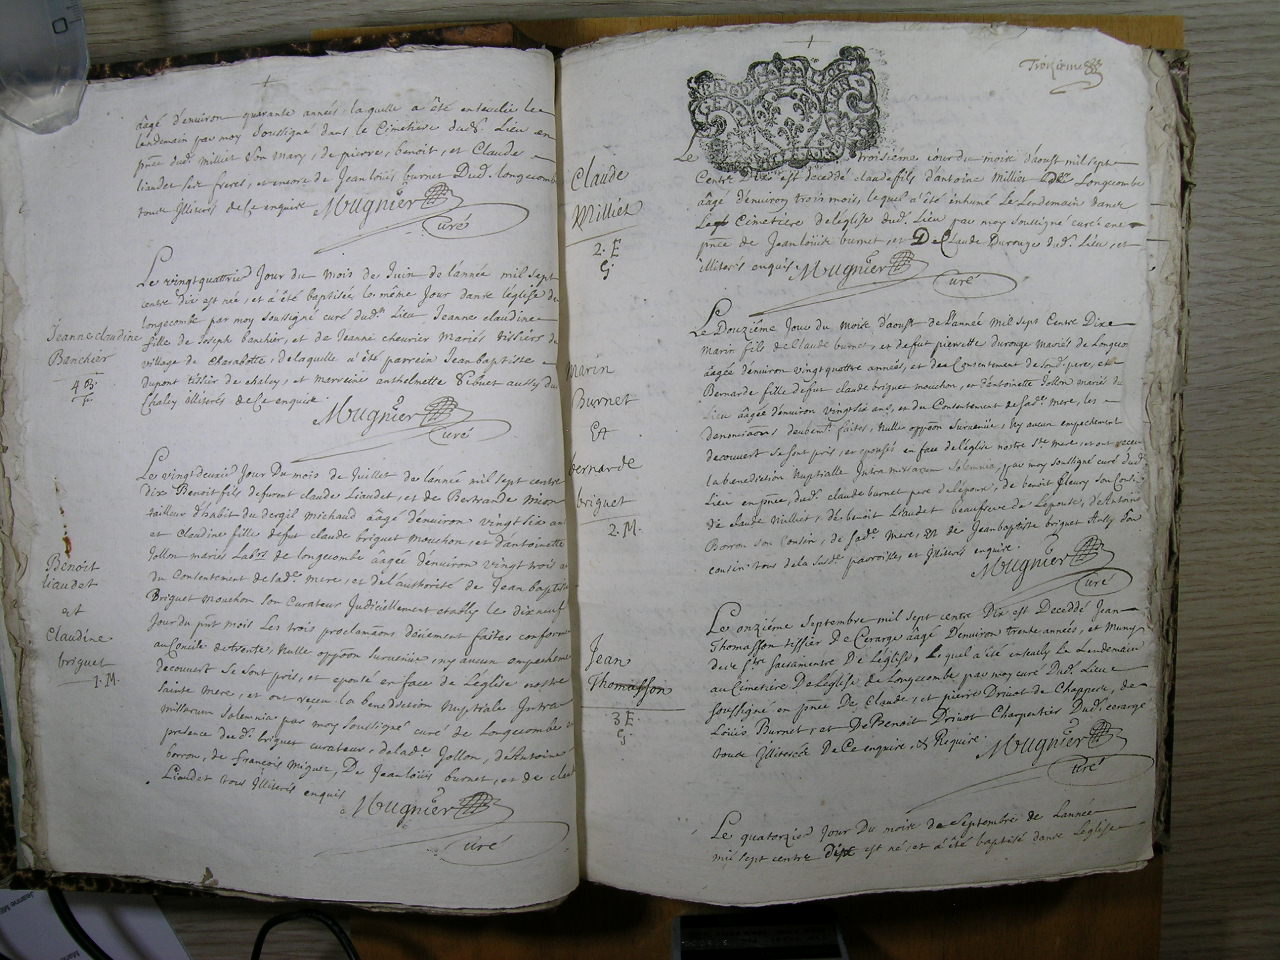 âagé d'environ quarante années laquelle a êté enseuelie le
lendemain par moy soussigné dans le Cimetiere dud. Lieu en
pñce dud. milliet son mary, de pierre, benoit, et Claude
liaudet ses freres, et encore de Jean loüis burnet Dud. longecombe
tous Illiterés de ce enquis Mugnier
Curé
Le vingt quattrie Jour du mois de Juin de l'année mil sept
centz dix est née, et a êté baptisée le même Jour dans l'église de
longecombe par moy soussigné curé dud. Lieu Jeanne claudine
fille de Joseph banchier, et de Jeanne cheurier Mariés tissiers du
village de Charalotte, de laquelle a êté parrein Jean baptiste
dupont tissier de chaley, et marreine anthelmette aussy du
Chaley illiterés de ce enquis
Jeanne claudine
Banchier
4 B.
F.
Mugnier
Curé
Le vingt deuxie Jour Du mois de Juillet de l'année mil sept centz
dix Benoit fils defunt claude Liaudet, et de Bertrande
tailleur d'habit du michaud âagé d'environ vingt six ans
et Claudine fille defut claude briguet Mouchon, et d'antoinette
Jollon mariés Labrs de longecombe âagée d'environ vingt trois
du Consentement de sade mere, et de l'authorité de Jean baptiste
Briguet mouchon son Curateur Judiciellement etably le dixneuf
Jour du pñt mois Les trois proclamaõns düement faites conform
au Concile de trente, Nulle oppõon suruenüe, ny aucun empecheme
decouuert se sont pris, et epousé en face de l'église nostre
sainte mere, et ont receu la benediction Nuptiale Intra
missarum solemnia par moy soussigné curé de Longecombe
presence dud. briguet curateur, de lade Jollon, d'Antoine
borron, de francois Miguet, De Jean loüis burnet, et de
Liaudet tous Illiterés enquis
Benoit
liaudet
et
Claudine
briguet
1. M.
Mugnier
Curé
Troizieme
GEN
Claude
Milliet
2. E
G.
Le troisiéme iour du mois d'aoust mil sept
Centz Dix est decedé claude fils d'antoine Milliet de Longecombe
âagé d'environ trois mois, lequel a'êté inhumé Le Lendemain dans
Le Cimetiere de l'église dud. Lieu par moy soussigné curé en
pñce de Jean loüis burnet, et De Claude Durouge dud. Lieu, et
illiterés enquis Mugnier
Curé
Marin
Burnet
Et
bernarde
briguet
2. M.
Le Douziéme Jour du Mois d'aoust de l'année Mil sept Centz Dix
Marin fils de Claude burnet, et defut pierrette durouge mariés de Longeco
âagée d'environ vingt quattre années, et du Consentement de sond. pere, et
Bernarde fille defut claude briguet mouchon, et d'antoinette Jollon mariés du
Lieu âagée d'environ vingt six ans, et du Consentement de sade mere, les
denonciaõns deubemt faites, Nulle oppõon suruenüe, Ny aucun empechement
decouuert se sont pris, et epousés en face de l'église nostre Ste mere, et ont receu
la benediction Nuptialle Intra missarum solemnia, par moy soussigné curé dud.
Lieu en pñce, dud. claude burnet pere de l'epoux, de benoit fleury son Cousin
de claude Milliet, de benoit Liaudet beaufrere de l'epouse, d'Antoine
Borron son Cousin, de sade Mere, et de Jean baptiste briguet Aussy son
cousin tous de la susde parroisse et Illiterés enquis
Mugnier
Curé
Jean
Thomasson
3 E
G.
Le onziéme Septembre mil sept centz Dix est Decedé Jean
Thomasson tissier De Cerarge âagé D'environ trente années, et Muny
des sts sacramentz De l'église, Lequel a'été enseuely Le Lendemain
au Cimetiere De l'église de Longecombe par moy curé Dud. Lieu
soussigné en pñce De Claude, et pierre Druot de Chappes, de
Loüis Burnet, et De Benoit Druot Charpentier Dud. cerarge
tous Illiterés De Ce enquis, & Requis Mugnier
Curé
Le quatorzie Jour Du mois de Septembre de L'année
mil sept centz dix est né, et a êté baptisé dans L'eglise